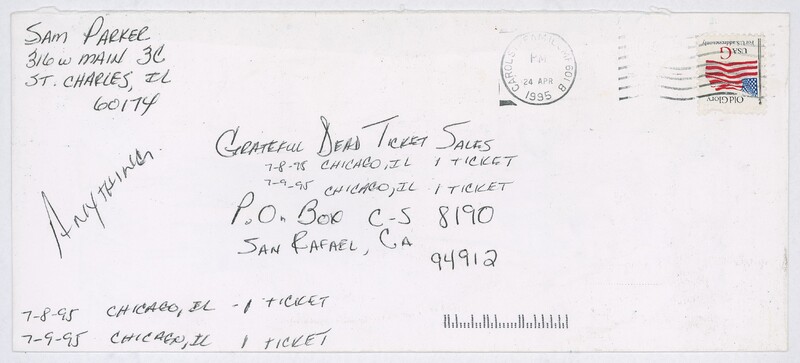 SAM PARKER
316 W MAIN 3C
ST. CHARLES, IL
60174
CAROL STREAM, IL
PM
24 APR
1995
USA G
For U.S. addresses only
Old Glory
GRATEFUL DEAD TICKET SALES
7-8-95 CHICAGO, IL 1 TICKET
7-9-95 CHICAGO, IL 1 TICKET
P.O. BOX C-S 8190
SAN RAFAEL, CA
94912
ANYTHING
7-8-95 CHICAGO, IL - 1 TICKET
7-9-95 CHICAGO, IL 1 TICKET